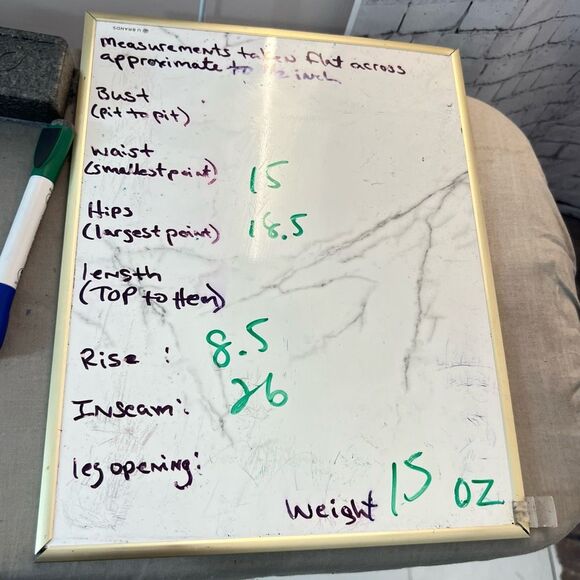 U BRANDS
measurements taken flat across
approximate to 1/2 inch
Bust
(pit to pit)
waist
(smallest point) 15
Hips
(largest point) 18.5
length
(TOP to Hem)
Rise : 8.5
Inseam: 26
leg opening:
Weight 15 OZ